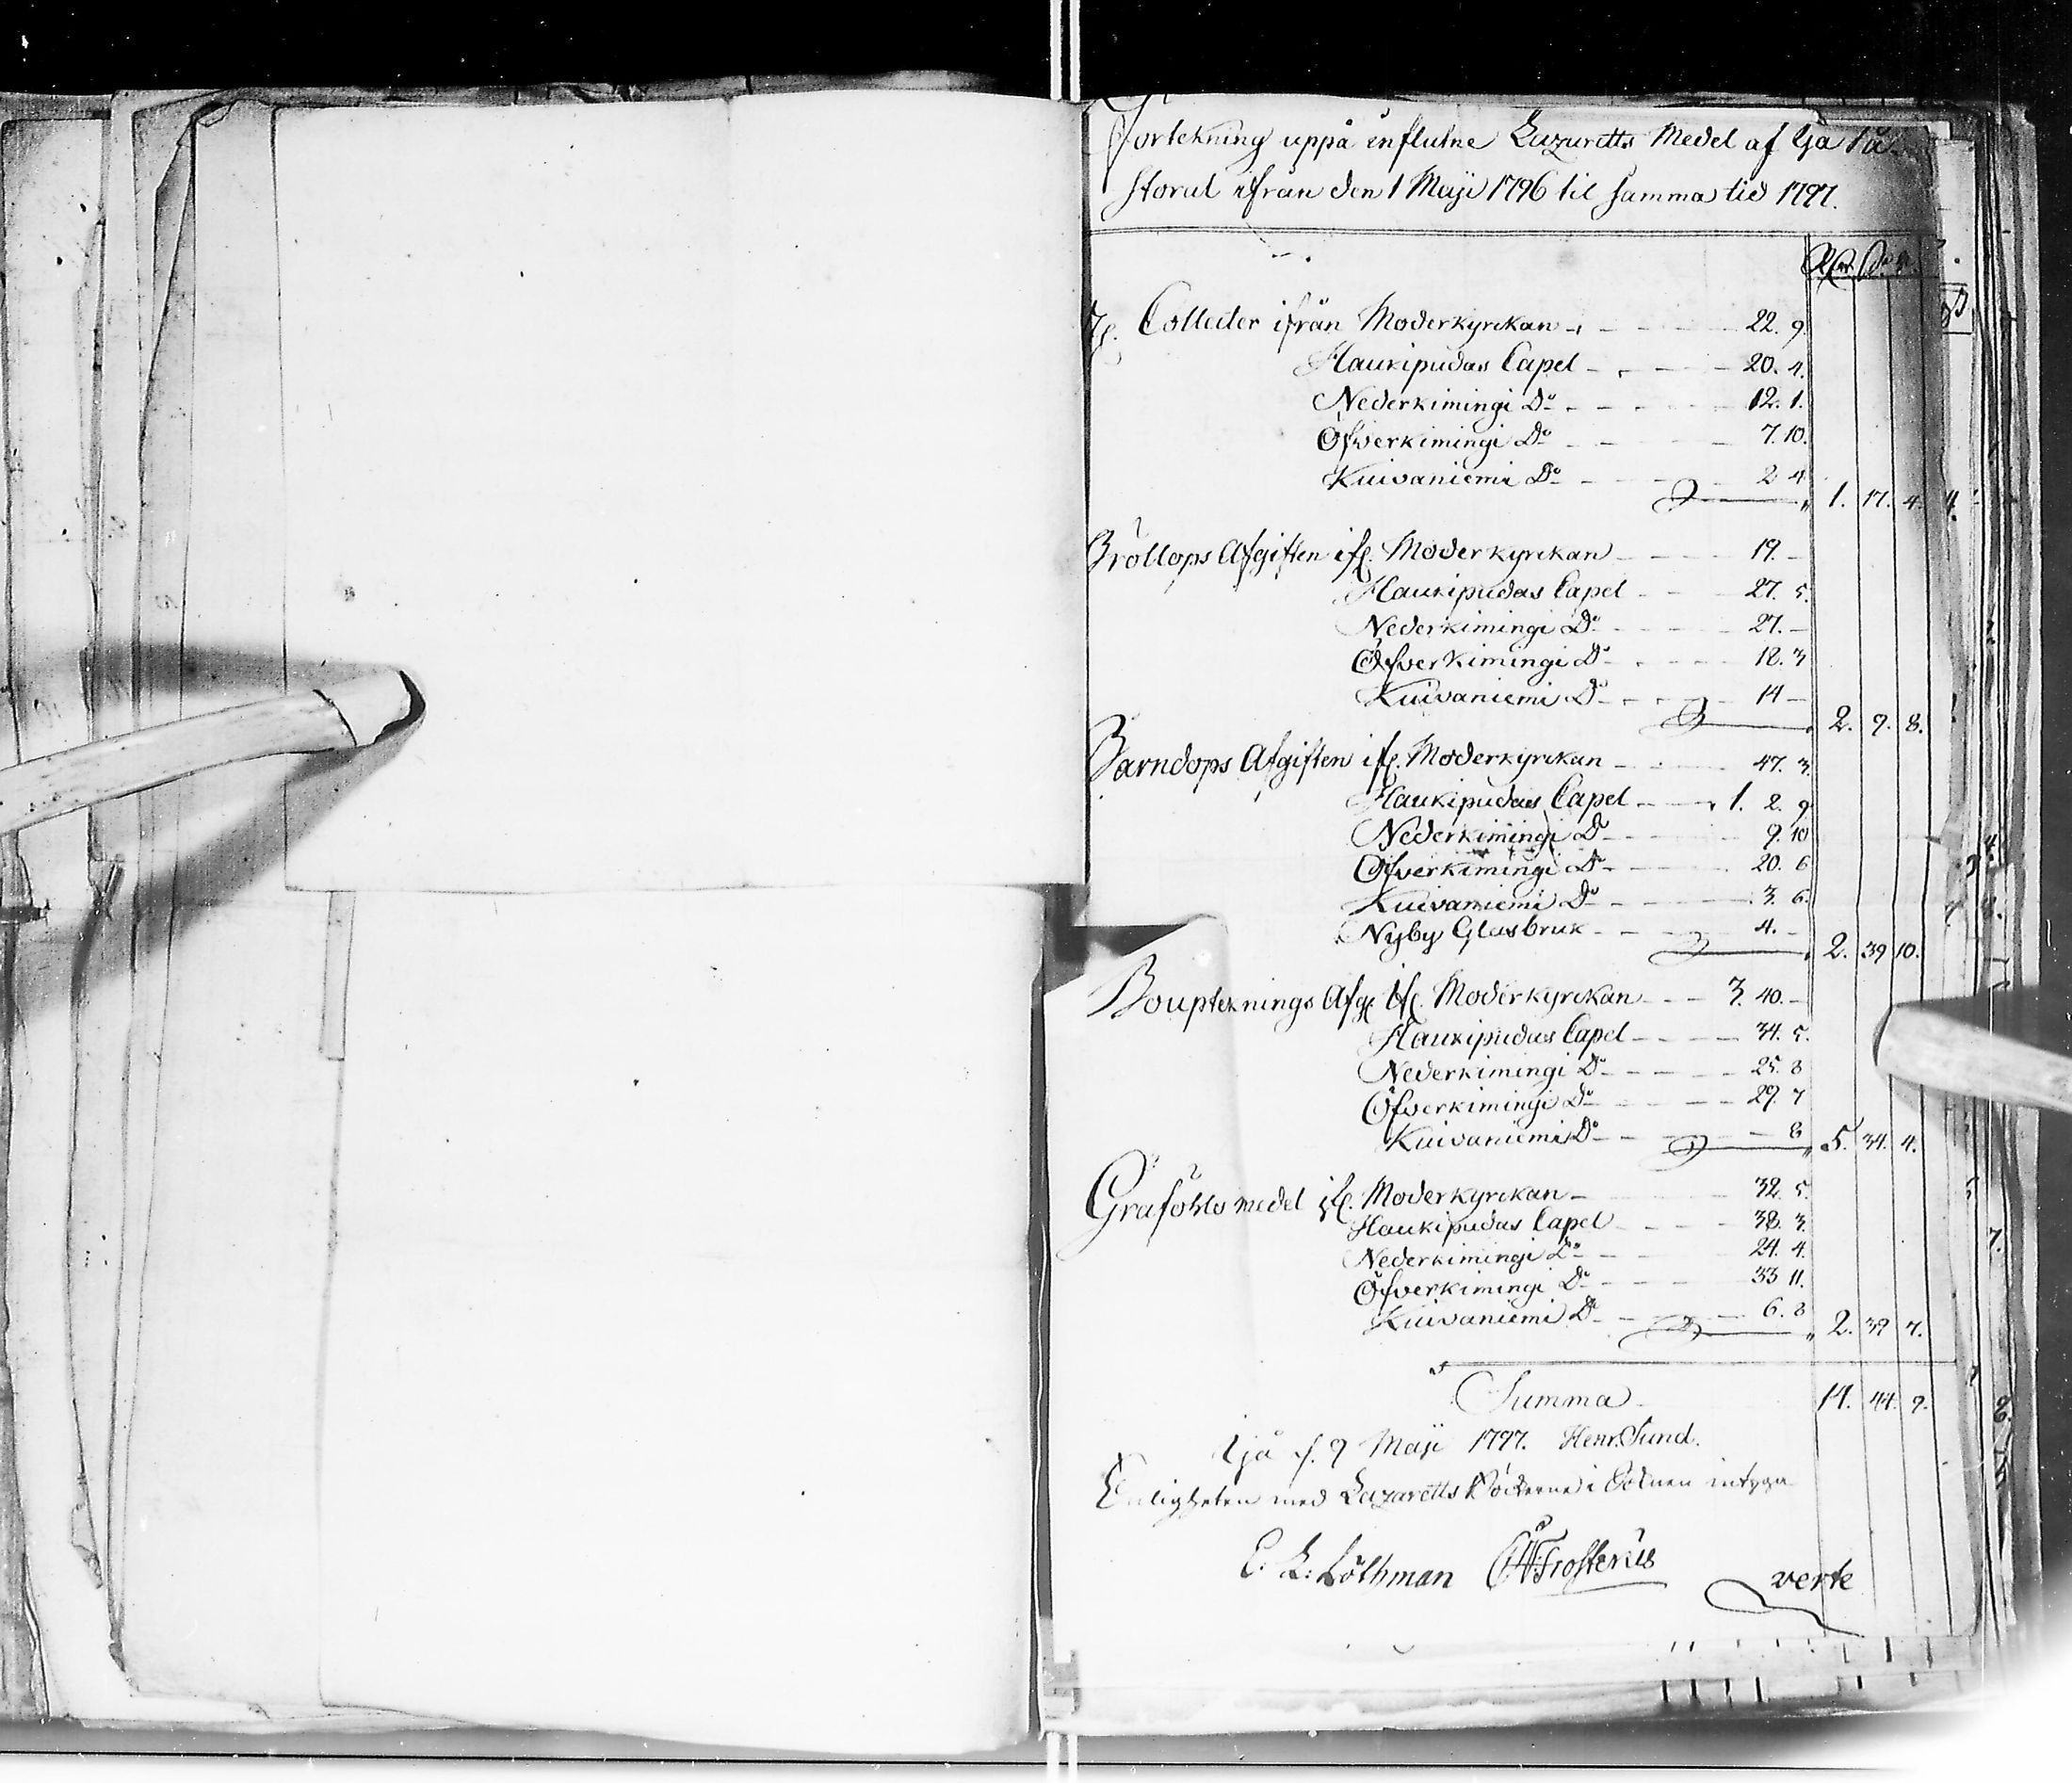 Förtekning uppå influtne Lazaretts Medel af Ijå Pa-
storat ifrån den 1 Maji 1796 til samma tid 1797.
Rd. S. r.
Af. Collecter ifrån Moderkyrckan 22. 9.
Haukipudas Capel 20. 4.
Nederkimingi Do 12. 1.
Öfverkimingi Do 7. 10.
Kuivaniemi Do 2 4 1. 17. 4.
Bröllops Afgiften ifr. Moderkyrckan 19. -
Haukipudas Capel 27. 5.
Nederkimingi Do 27. -
Öfverkimingi Do 18. 3
Kuivaniemi Do 14 - 2. 9. 8.
Barndops Afgiften ifr. Moderkyrckan 47. 3.
Haukipudas Capel 1. 2. 9
Nederkimingi Do 9. 10
Öfverkimingi Do 20. 6
Kuivaniemi Do 3. 6.
Nyby Glasbruk 4. - 2. 39 10.
Boupteknings Afg. ifr. Moderkyrckan 3. 40. -
Haukipudas Capel 34. 5.
Nederkimingi Do 25. 8
Öfverkimingi Do 29. 7
Kuivaniemi Do 8 5. 34. 4.
Grafööls medel ifr. Moderkyrckan 32. 5.
Haukipudas Capel 38. 3.
Nederkimingi Do 24. 4.
Öfverkimingi Do 33 11.
Kuivaniemi Do 6. 8 2. 39 7.
Summa 14. 44. 9.
Ijå d. 9 Maji 1797. Henr. Sund.
Enligheten med Lazaretts Böckerne i Socknen intyga
E. L: Löthman Frosterus verte